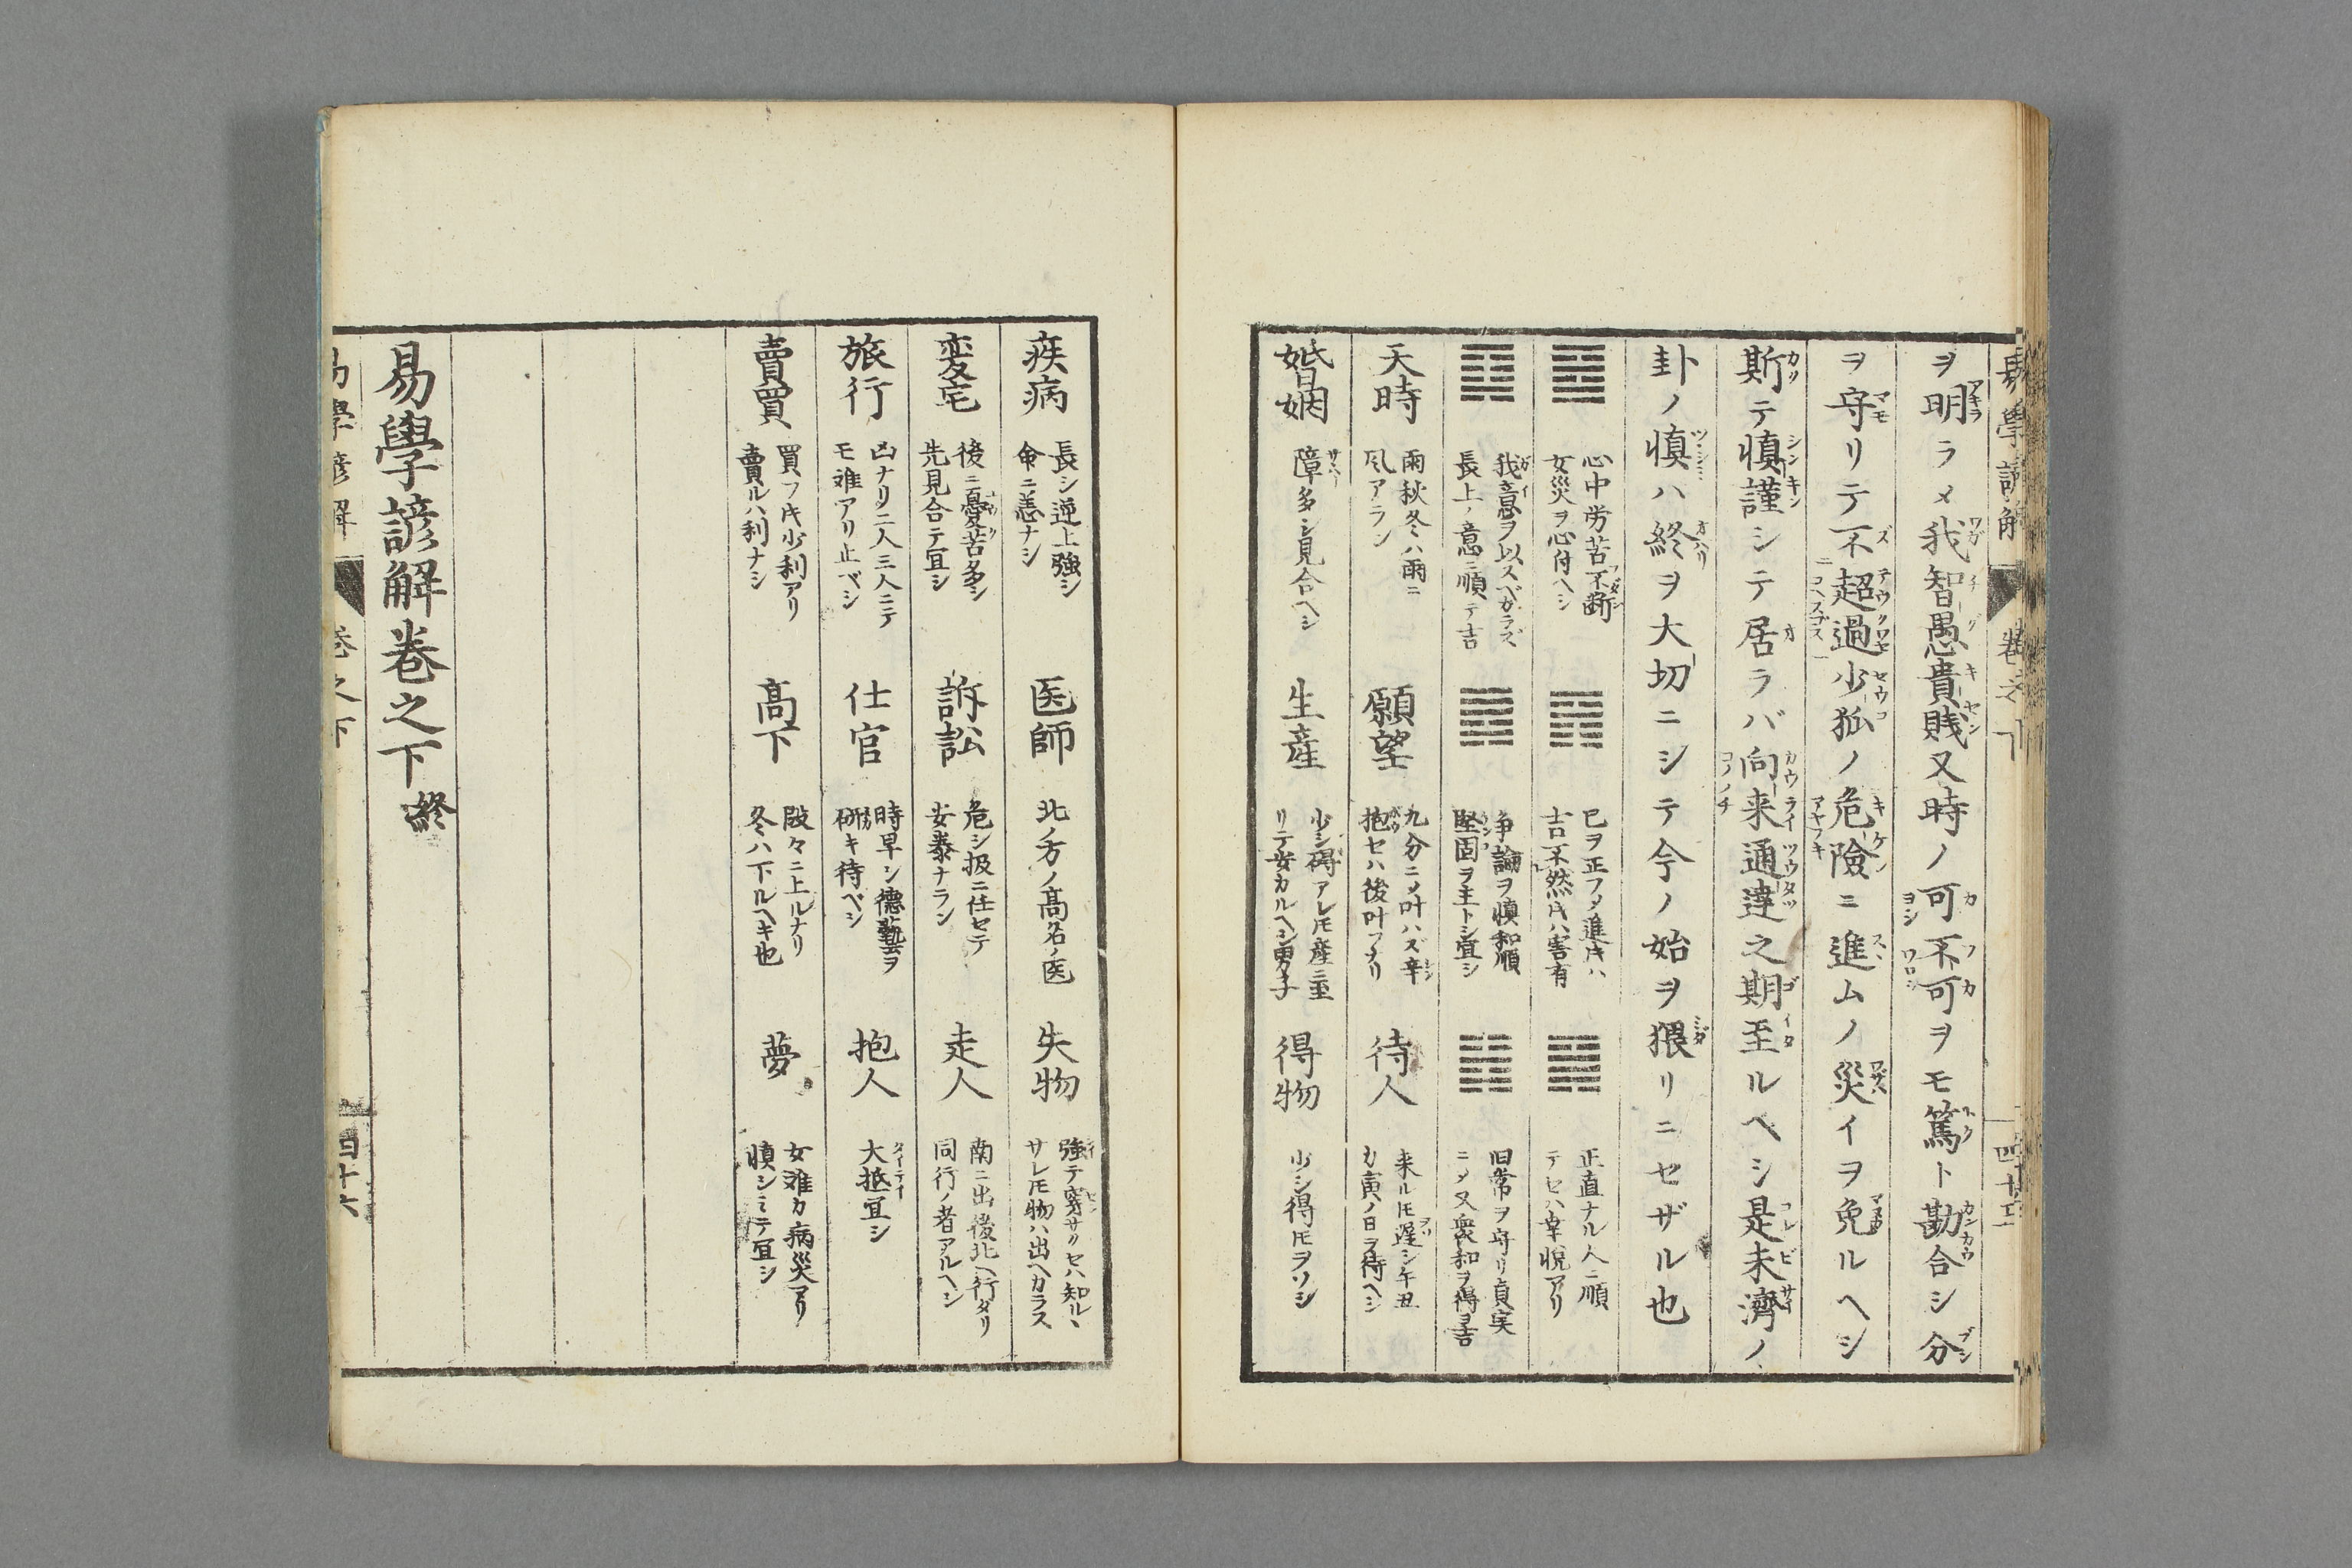 ヲ明ラメ我智愚貴賤又時ノ可不可ヲモ篤ト勘合シ分
ヲ守リテ不超過少狐ノ危險ニ進ムノ災イヲ免ルヘシ
斯テ慎謹シテ居ラバ向来通達之期至ルヘシ是未濟ノ
卦ノ慎ハ終ヲ大切ニシテ今ノ始ヲ猥リニセザル也
心中労苦不断
女災ヲ心付ヘシ
吉不然𪜈ハ害有
正直ナル人ニ順
我意ヲ以スベカラズ
長上ノ意ニ順テ吉
争論ヲ慎和順
堅固ヲ主トシ宜シ
旧常ヲ守リ貞実
天時
雨秋冬ハ雨ニ
風アラン
願望
九分ニ〆叶ハズ辛
抱セハ後叶フナリ
待人
来ル𪜈遅シ午丑
カ寅ノ日ヲ待ヘシ
婚姻
障多シ見合ヘシ
生産
少シ碍アレ𪜈産ニ至
リテ安カルヘシ男子
得物
少シ得𪜈ヲソシ
疾病
長シ逆上強シ
命ニ恙ナシ
医師
北ノ方ノ髙名ノ医
失物
サレ𪜈物ハ出ヘカラス
変宅
後ニ憂苦多シ
先見合テ宜シ
訴訟
危シ扱ニ任セテ
安泰ナラン
走人
南ニ出後北ヘ行ダリ
同行ノ者アルヘシ
旅行
凶ナリ二人三人ニテ
モ难アリ止ベシ
仕官
時早シ德藝ヲ
研キ待ベシ
抱人
大抵宜シ
賣買
買フ𪜈少利アリ
賣ルハ利ナシ
髙下
段々ニ上ルナリ
冬ハ下ルヘキ也
夢
女难カ病災アリ
慎シミテ宜シ
易學諺解卷之下終
易學諺解 卷之下 四十六